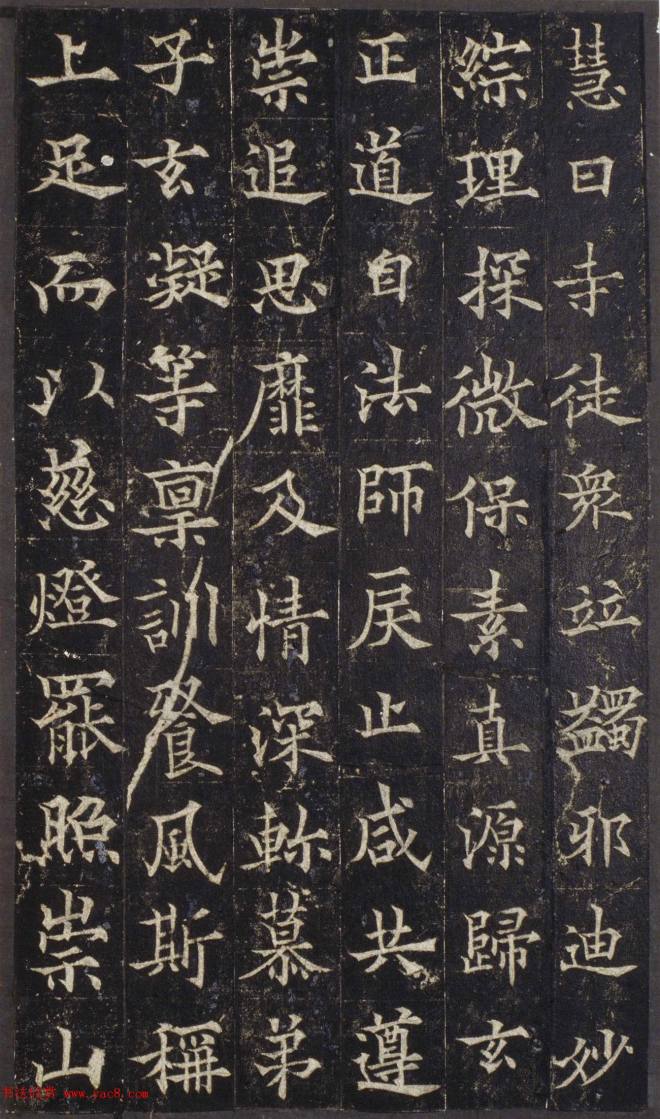 慧日寺徒眾竝蠲邪迪妙
綜理探微保素真源歸玄
正道自法師戾止咸共遵
崇追思靡及情深軫慕弟
子玄凝等稟訓餐風斯稱
上足而以慈燈罷照崇山
www.yac8.com